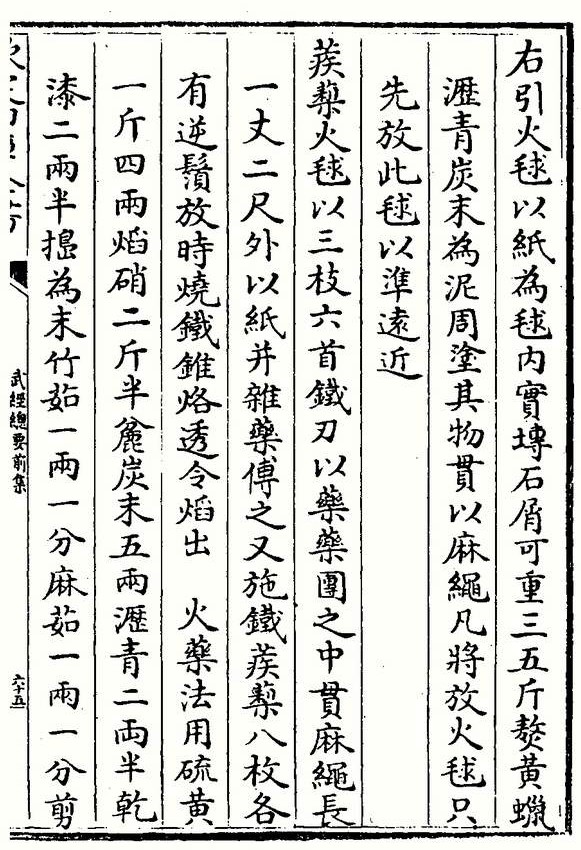 右引火毬以紙為毬内實塼石屑可重三五斤熬黃蠟
瀝青炭末為泥周塗其物貫以麻繩凡將放火毬只
先放此毬以準遠近
蒺蔾火毬以三枝六首鐵刃以藥藥團之中貫麻繩長
一丈二尺外以紙并雜藥傅之又施鐵蒺蔾八枚各
有逆鬚放時燒鐵錐烙透令焰出 火藥法用硫黃
一斤四兩焰硝二斤半麄炭末五兩瀝青二兩半乾
漆二兩半搗為末竹茹一兩一分麻茹一兩一分剪
武經總要前集
六十五